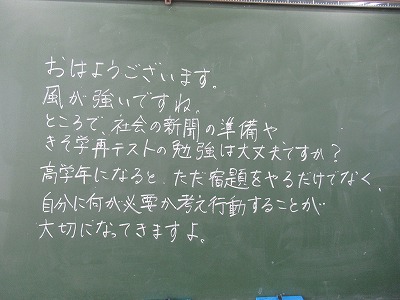 おはようございます。
風が強いですね。
ところで、社会の新聞の準備や
きそ学再テストの勉強は大丈夫ですか？
高学年になると、ただ宿題をやるだけでなく、
自分に何が必要か考え行動することが
大切になってきますよ。